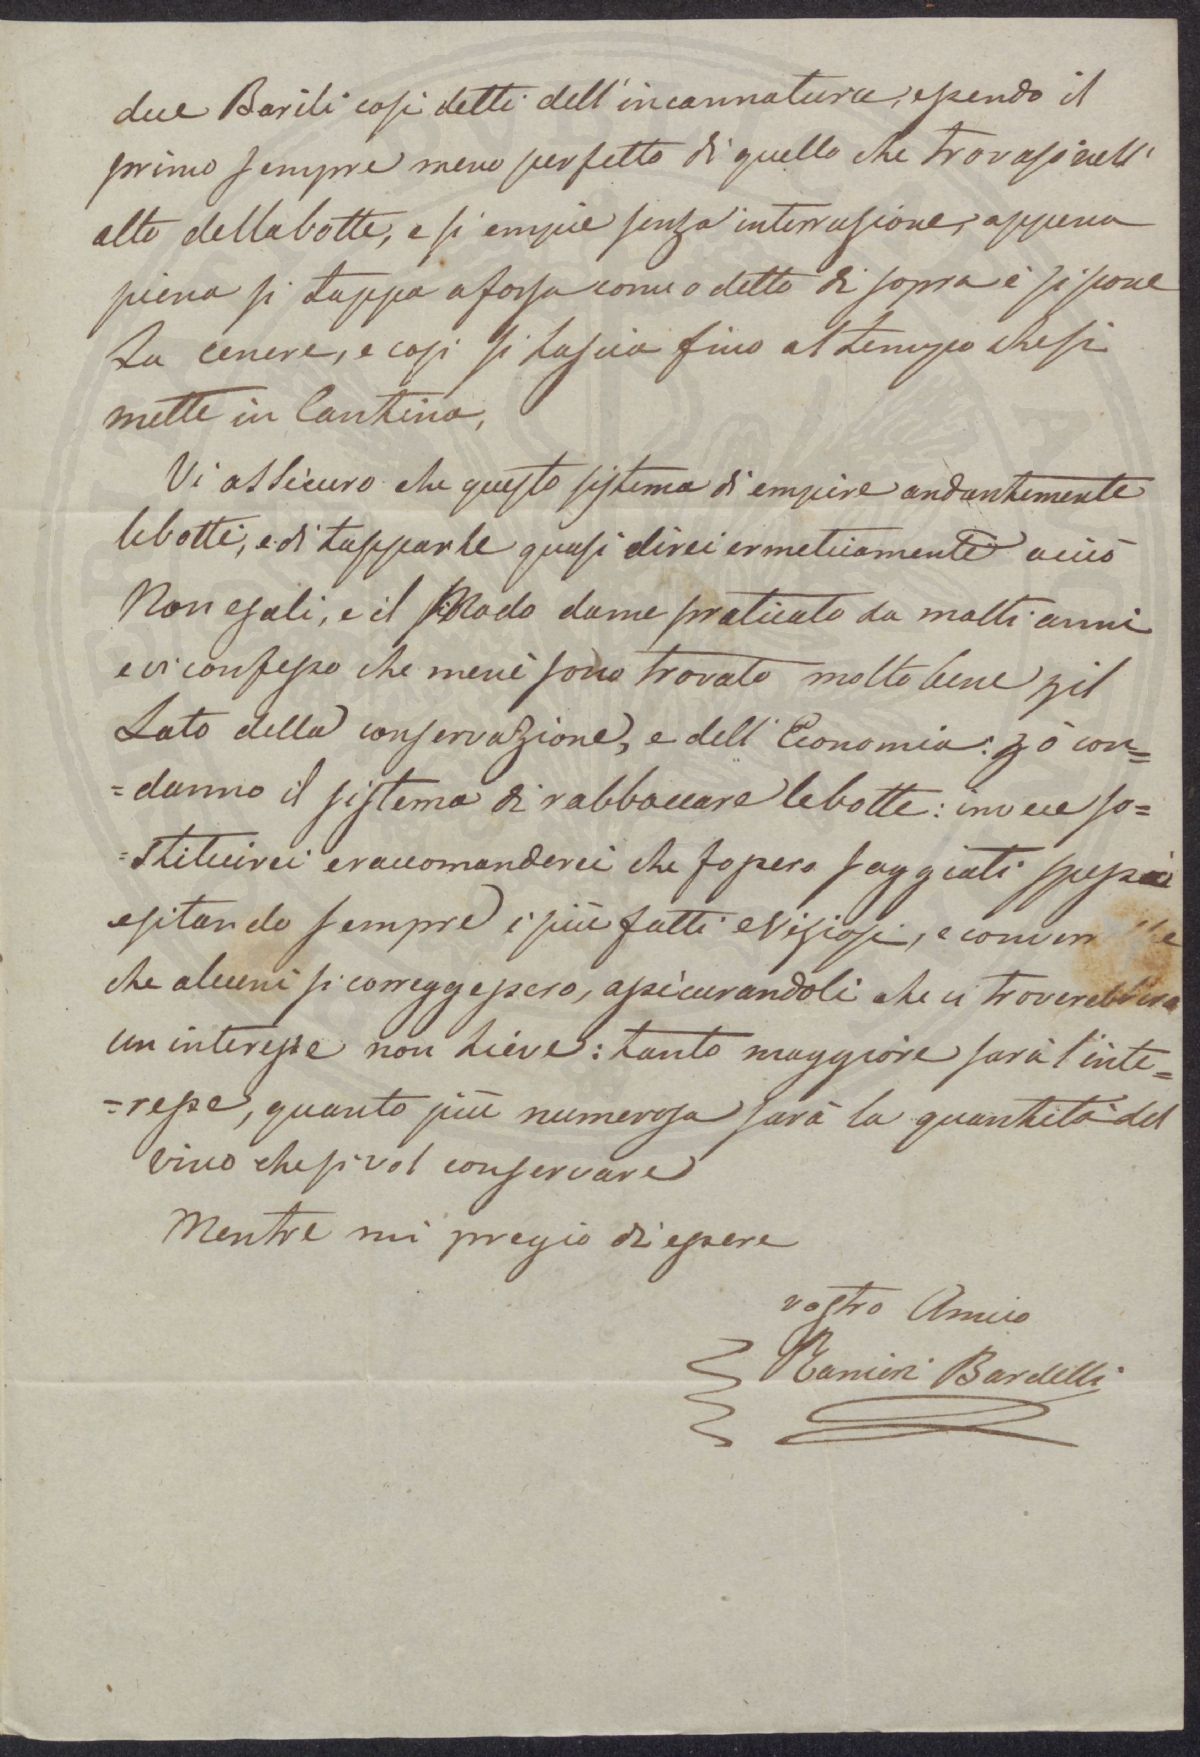 due Barili così detti dell'incannatura, essendo il
primo sempre meno perfetto di quello che trovasi nell'
alto dellabotte, e si empie senza interrusione, appena
piena si tappa aforsa come o detto di sopra è si pone
La cenere, e così si Lascia fino al tempo che si
mette in Cantina,
Vi assicuro che questo sistema di empire andantemente
lebotti, e di tapparle quasi direi ermeticamente acciò
Non esali, e il Modo dame praticato da molti anni
e vi confesso che menè sono trovato molto bene p il
Lato della conservazione, e dell'Economia: pò con=
=danno il sistema di rabboccare lebotte: invece so=
=stituirei eraccomanderei che fossero saggiati spesso
esitando sempre i più fatti eViziosi, e
che alcuni si correggessero, assicurandoli che ci troverebbero
un interesse non Lieve: tanto maggiore sarà l'inte=
=resse, quanto più numerosa sarà la quantità del
vino che si vol conservare
Mentre mi pregio di essere
vostro Amico
Ranieri Bardelli